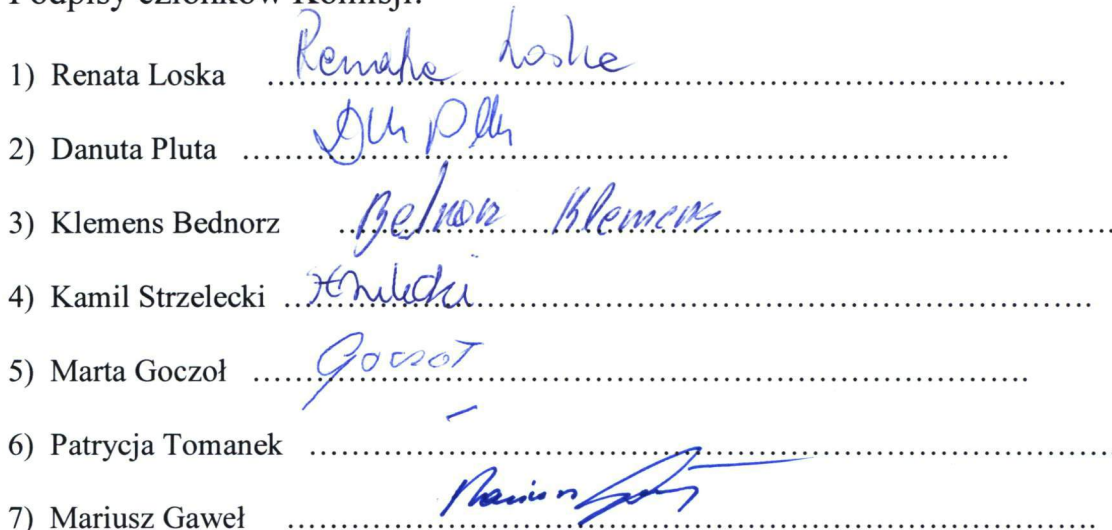 Podpisy członków Komisji:
1) Renata Loska ........ Renata Loska
2) Danuta Pluta ........
3) Klemens Bednorz ........ Bednorz Klemens
4) Kamil Strzelecki ........ Strzelecki
5) Marta Goczoł ........ Goczoł
6) Patrycja Tomanek ........ –
7) Mariusz Gaweł ........ Mariusz